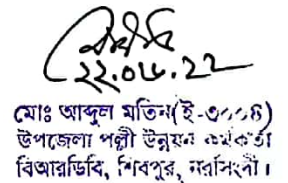 ২২.০৬.২২
মোঃ আব্দুল মতিন(ই-৩০০৪)
উপজেলা পল্লী উন্নয়ন কর্মকর্তা
বিআরডিবি, শিবপুর, নরসিংদী।